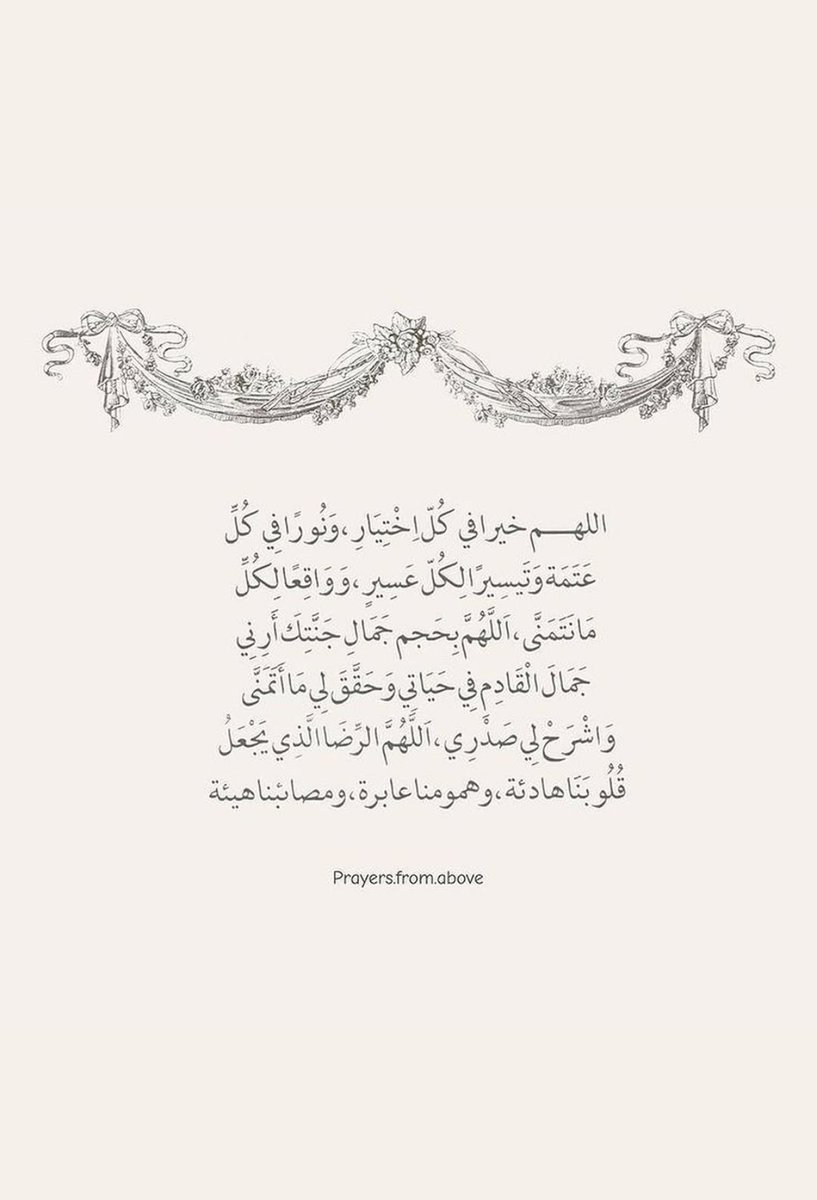 اللهـــم خيرا في كُلّ اِخْتِيَارِ، وَنُورًا فِي كُلِّ
عَتَمَة وَتَيسِيرًا لِكُلّ عَسِيرٍ، وَوَاقِعًا لِكُلِّ
مَا نَتَمَنَّى، اَللَّهُمَّ بِحَجم جَمَالِ جَنَّتِكَ أَرِنِي
جَمَالَ الْقَادِمِ فِي حَيَاتِي وَحَقَّقَ لِي مَا أَتَمَنَّى
وَاشْرَحْ لِي صَدْرِي، اَللَّهُمَّ الرِّضَا الَّذِي يَجْعَلُ
قُلُوبَنَا هادئة، وهمومنا عابرة، ومصائبنا هيئة
Prayers.from.above